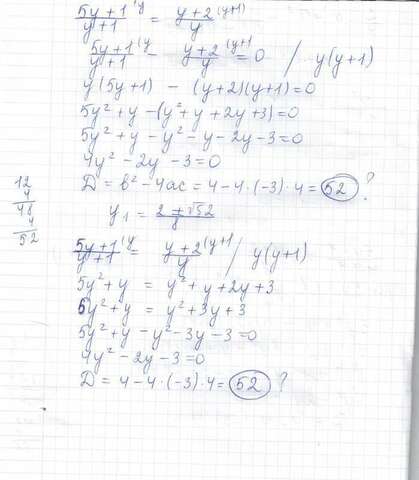 (5y+1)/(y+1) ^(y = (y+2)/y ^(y+1)
(5y+1)/(y+1) ^(y - (y+2)/y ^(y+1) = 0 / y(y+1)
y(5y+1) - (y+2)(y+1)=0
5y²+y-(y²+y+2y+3)=0
5y²+y-y²-y-2y-3=0
4y²-2y-3=0
D=b²-4ac=4-4·(-3)·4=52 ?
y₁=(2+√52)/8
12
4
48
4
52
(5y+1)/(y+1) ^(y = (y+2)/y ^(y+1) / y(y+1)
5y²+y=y²+y+2y+3
5y²+y=y²+3y+3
5y²+y-y²-3y-3=0
4y²-2y-3=0
D=4-4·(-3)·4=52 ?